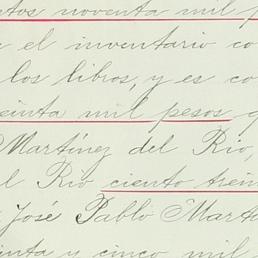 ntos noventa mil p
el inventario co
los libros, y es co
einta mil pesos
Martínez del Rio,
l Rio ciento trein
José Pablo Martí
inta y cinco mil